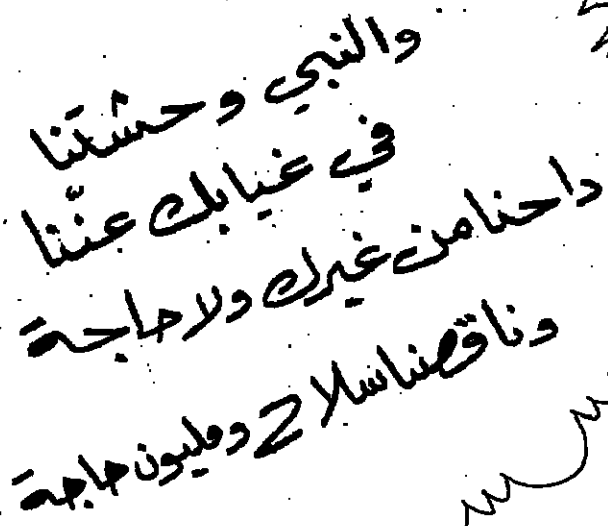 والنبي وحشتَنا
في غيابك عنّنا
داحنا من غيرك ولا حاجة
وناقصنا سلاح ومليون حاجة